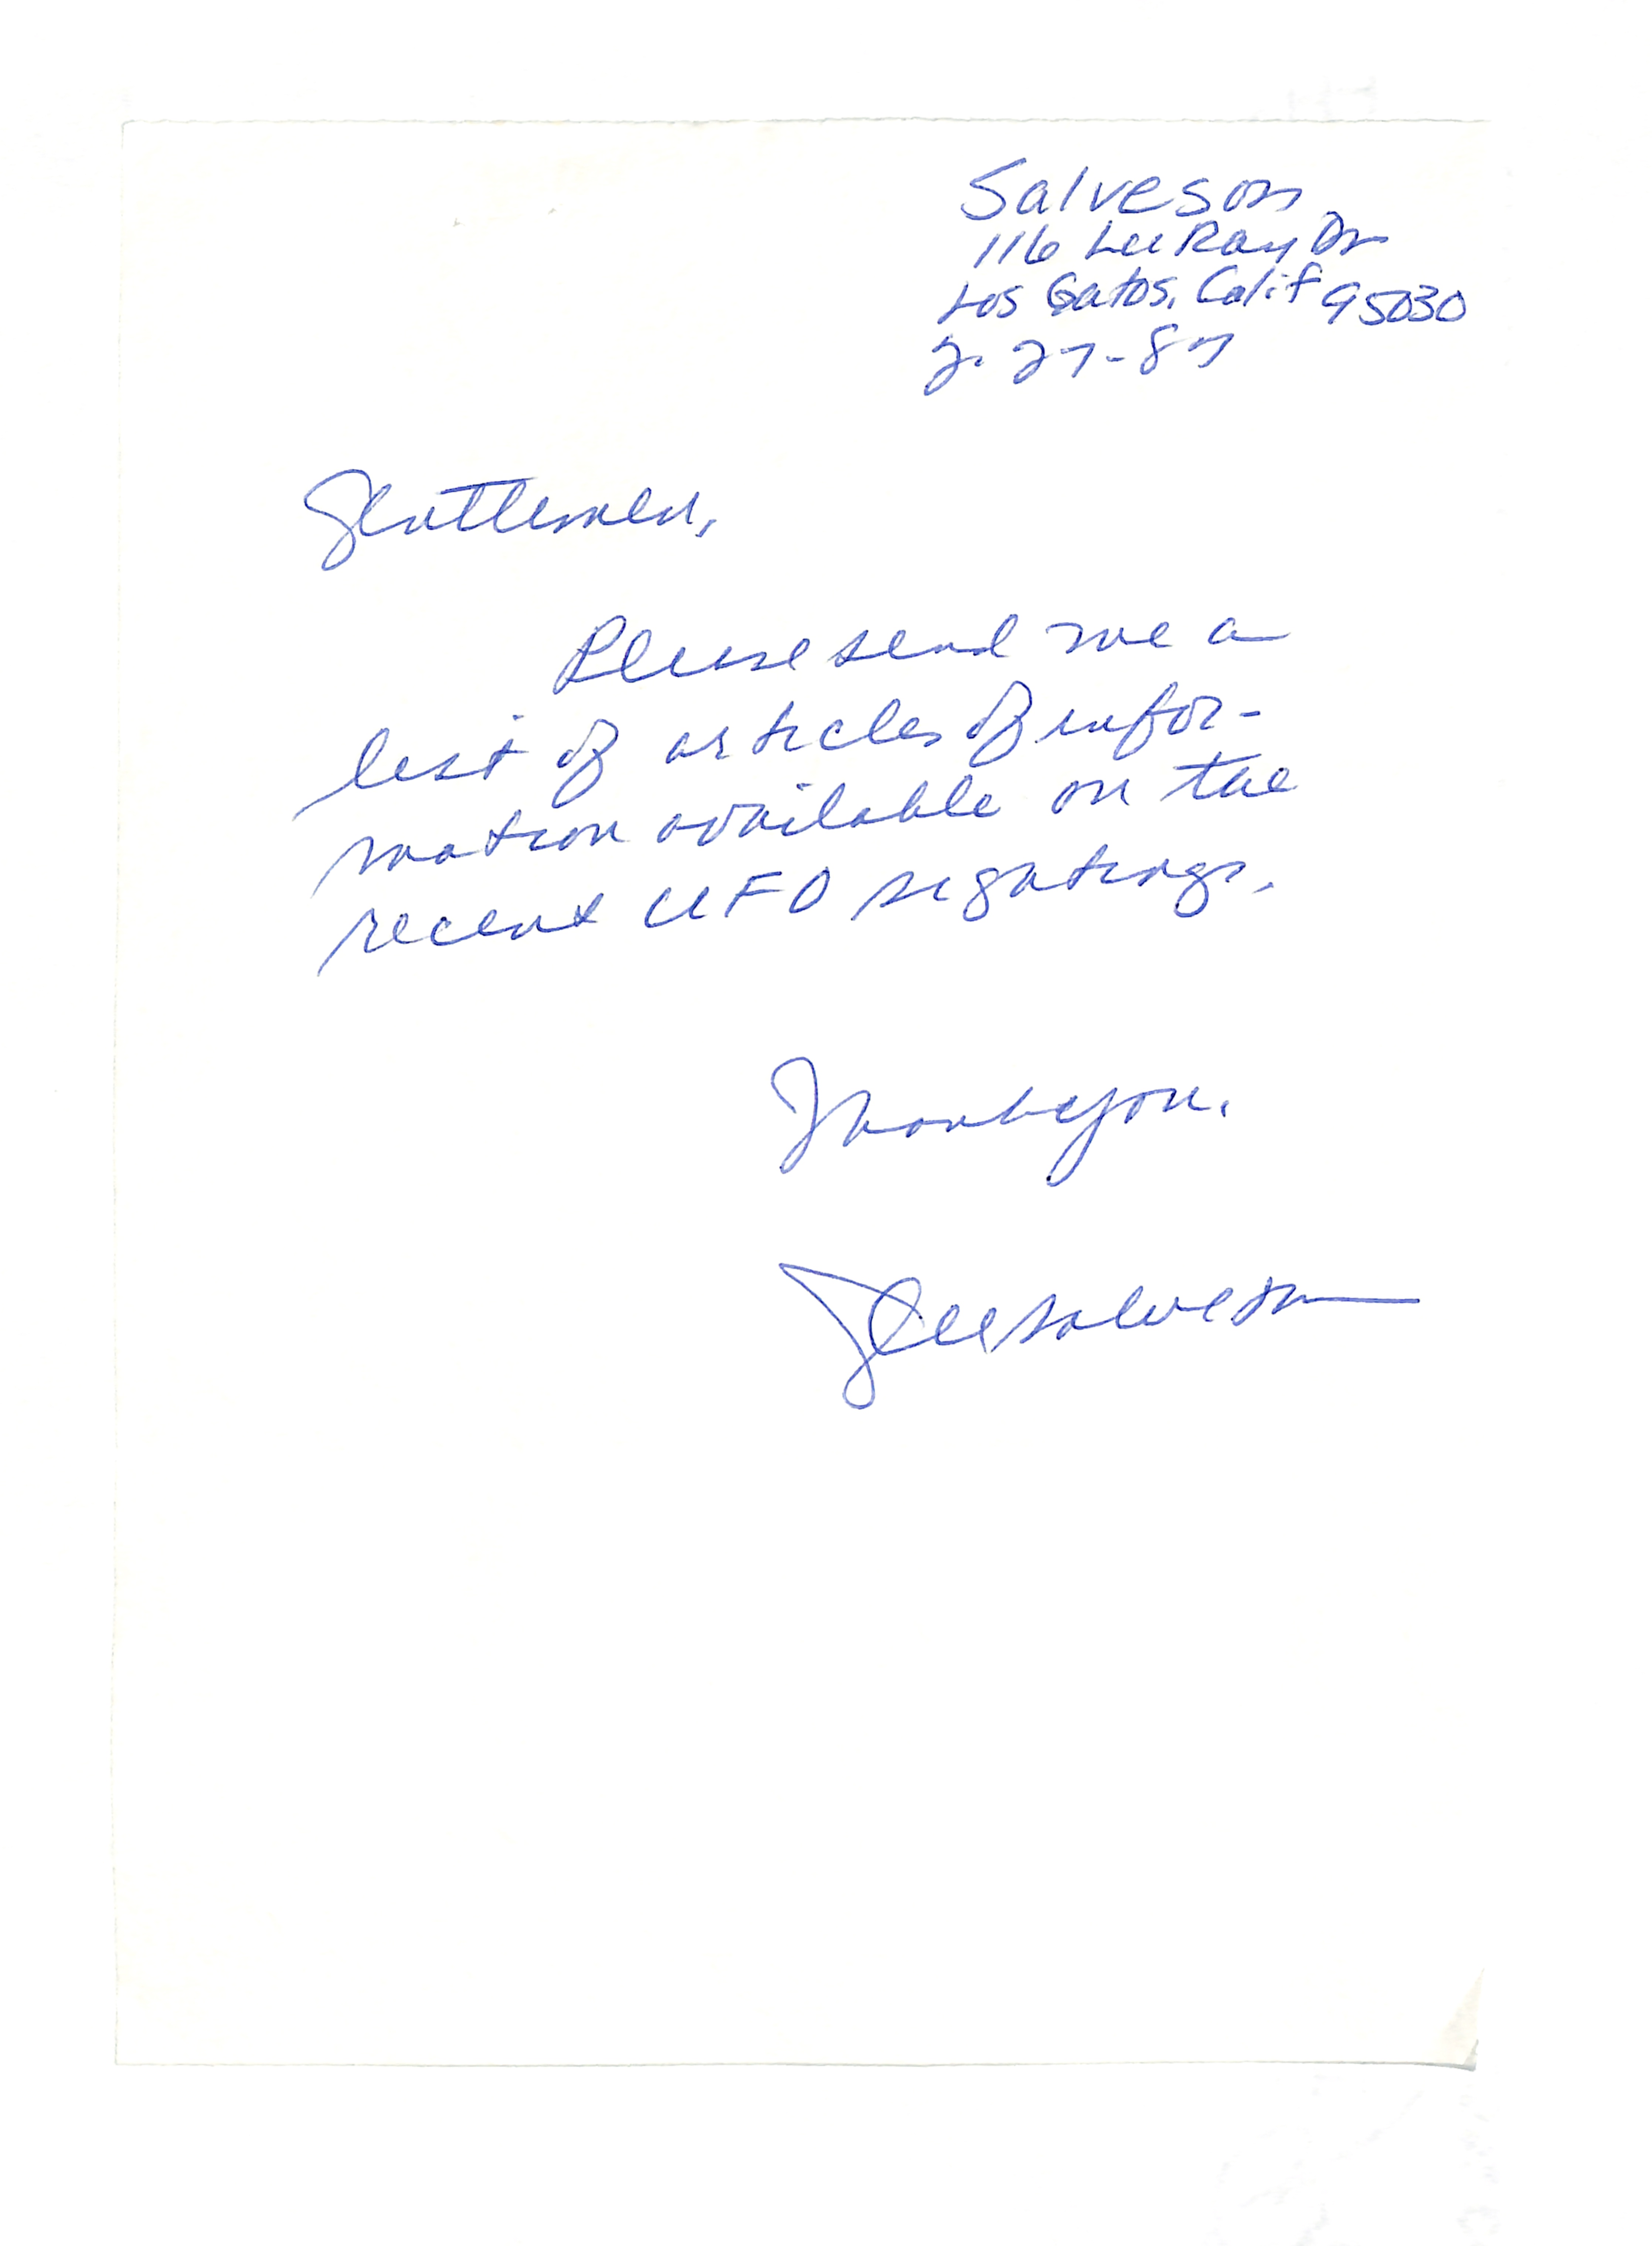 Salveson
116 Lee Ray Dr
Los Gatos, Calif 95030
2. 27-87
Gentlemen,
Please send me a
list of articles of infor-
mation available on the
recent UFO sightings.
Thank you.
Salveson